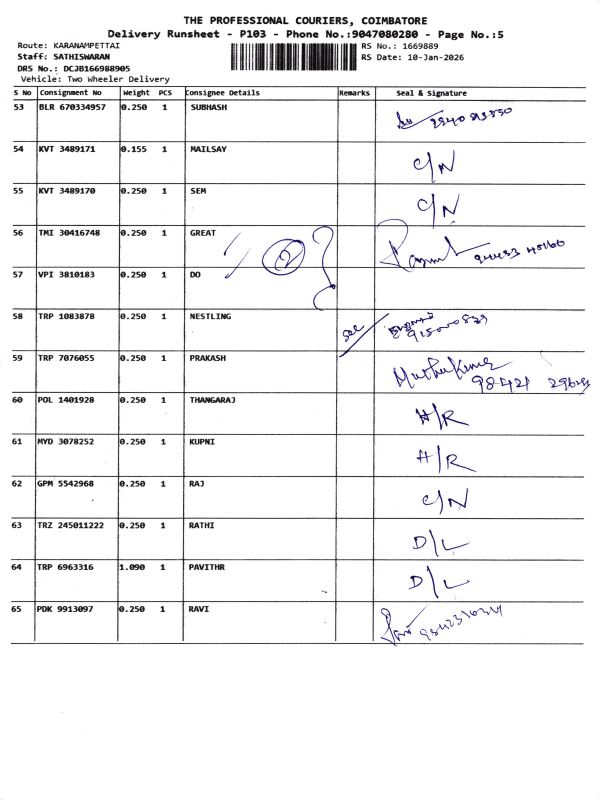 THE PROFESSIONAL COURIERS, COIMBATORE
Delivery Runsheet - P103 - Phone No.:9047080280 - Page No.:5
Route: KARANAMPETTAI
RS No.: 1669889
Staff: SATHISWARAN
RS Date: 10-Jan-2026
DRS No.: DCJB166988905
Vehicle: Two Wheeler Delivery
S No Consignment No Weight PCS Consignee Details Remarks Seal & Signature
53 BLR 670334957 0.250 1 SUBHASH
54 KVT 3489171 0.155 1 MAILSAY C/N
55 KVT 3489170 0.250 1 SEM C/N
56 TMI 30416748 0.250 1 GREAT 2
57 VPI 3810183 0.250 1 DO
58 TRP 1083878 0.250 1 NESTLING
59 TRP 7076055 0.250 1 PRAKASH Muthukumar 98421
60 POL 1401928 0.250 1 THANGARAJ H/R
61 MYD 3078252 0.250 1 KUPNI H/R
62 GPM 5542968 0.250 1 RAJ C/N
63 TRZ 245011222 0.250 1 RATHI D/L
64 TRP 6963316 1.090 1 PAVITHR D/L
65 PDK 9913097 0.250 1 RAVI